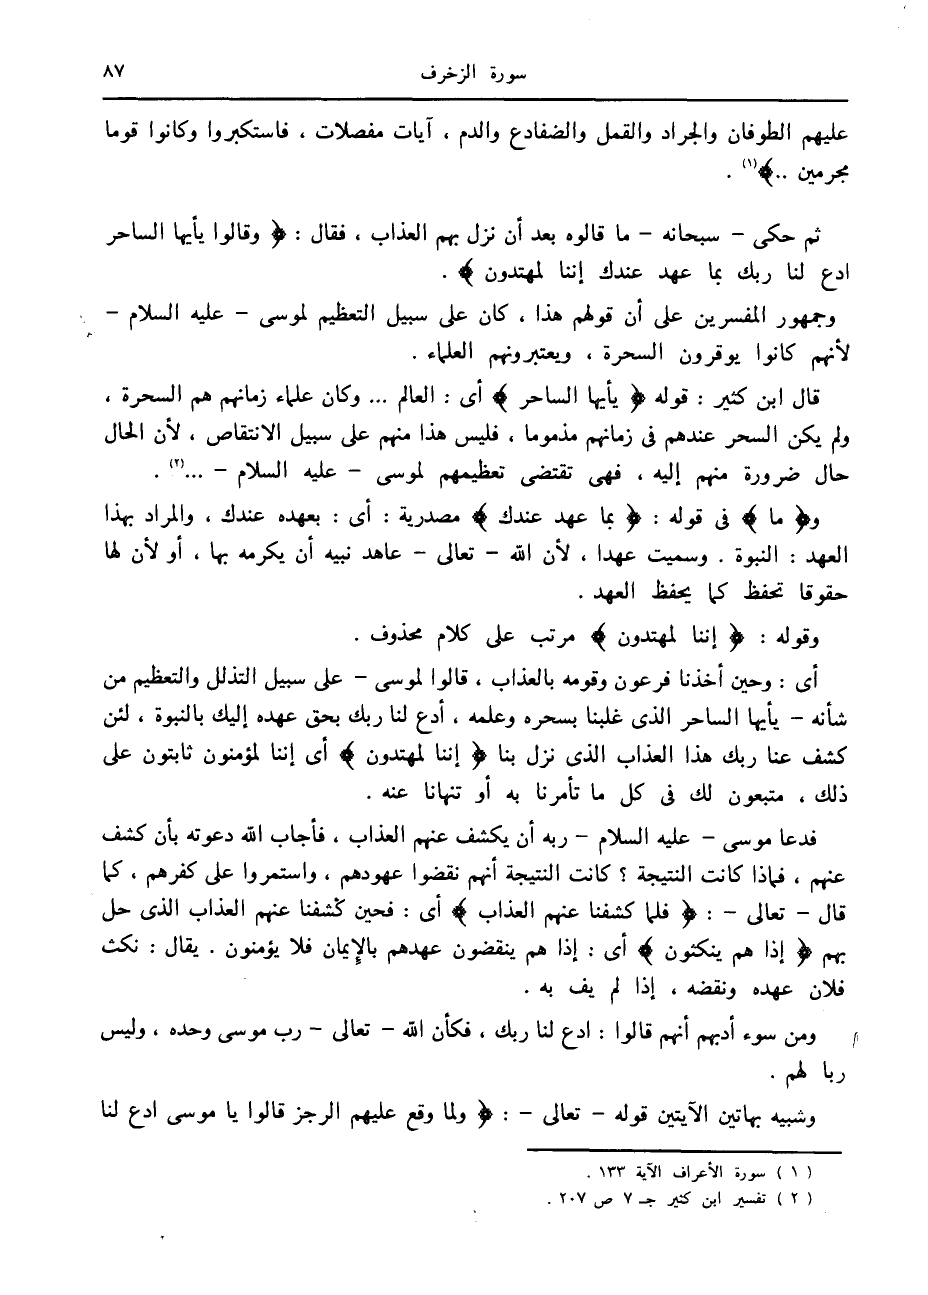 سورة الزخرف ٨٧
عليهم الطوفان والجراد والقمل والضفادع والدم ، آيات مفصلات ، فاستكبروا وكانوا قوما
مجرمين ..﴾(١) .
ثم حكى – سبحانه – ما قالوه بعد أن نزل بهم العذاب ، فقال : ﴿ وقالوا يأيها الساحر
ادع لنا ربك بما عهد عندك إننا لمهتدون ﴾ .
وجمهور المفسرين على أن قولهم هذا ، كان على سبيل التعظيم لموسى – عليه السلام –
لأنهم كانوا يوقرون السحرة ، ويعتبرونهم العلماء .
قال ابن كثير : قوله ﴿ يأيها الساحر ﴾ أى : العالم ... وكان علماء زمانهم هم السحرة ،
ولم يكن السحر عندهم فى زمانهم مذموما ، فليس هذا منهم على سبيل الانتقاص ، لأن الحال
حال ضرورة منهم إليه ، فهى تقتضى تعظيمهم لموسى – عليه السلام – ...(٢) .
و﴿ ما ﴾ فى قوله : ﴿ بما عهد عندك ﴾ مصدرية : أى : بعهده عندك ، والمراد بهذا
العهد : النبوة . وسميت عهدا ، لأن الله – تعالى – عاهد نبيه أن يكرمه بها ، أو لأن لها
حقوقا تحفظ كما يحفظ العهد .
وقوله : ﴿ إننا لمهتدون ﴾ مرتب على كلام محذوف .
أى : وحين أخذنا فرعون وقومه بالعذاب ، قالوا لموسى – على سبيل التذلل والتعظيم من
شأنه – يأيها الساحر الذى غلبنا بسحره وعلمه ، أدع لنا ربك بحق عهده إليك بالنبوة ، لئن
كشف عنا ربك هذا العذاب الذى نزل بنا ﴿ إننا لمهتدون ﴾ أى إننا لمؤمنون ثابتون على
ذلك ، متبعون لك فى كل ما تأمرنا به أو تنهانا عنه .
فدعا موسى – عليه السلام – ربه أن يكشف عنهم العذاب ، فأجاب الله دعوته بأن كشف
عنهم ، فماذا كانت النتيجة ؟ كانت النتيجة أنهم نقضوا عهودهم ، واستمروا على كفرهم ، كما
قال – تعالى – : ﴿ فلما كشفنا عنهم العذاب ﴾ أى : فحين كشفنا عنهم العذاب الذى حل
بهم ﴿ إذا هم ينكثون ﴾ أى : إذا هم ينقضون عهدهم بالإيمان فلا يؤمنون . يقال : نكث
فلان عهده ونقضه ، إذا لم يف به .
ومن سوء أدبهم أنهم قالوا : ادع لنا ربك ، فكأن الله – تعالى – رب موسى وحده ، وليس
ربا لهم .
وشبيه بهاتين الآيتين قوله – تعالى – : ﴿ ولما وقع عليهم الرجز قالوا يا موسى ادع لنا
( ١ ) سورة الأعراف الآية ١٣٣ .
( ٢ ) تفسير ابن كثير جـ ٧ ص ٢٠٧ .